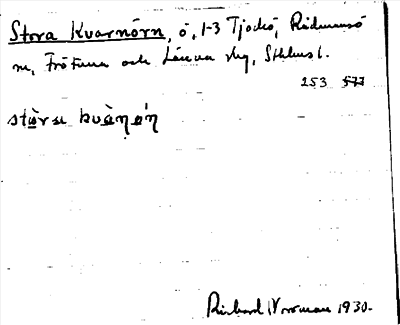 Stora Kvarnörn, ö, 1-3 Tjockö, Rådmansö
sn, Frötuna och Länna skg, Sthlms l.
253 577
Richard Norrman 1930.